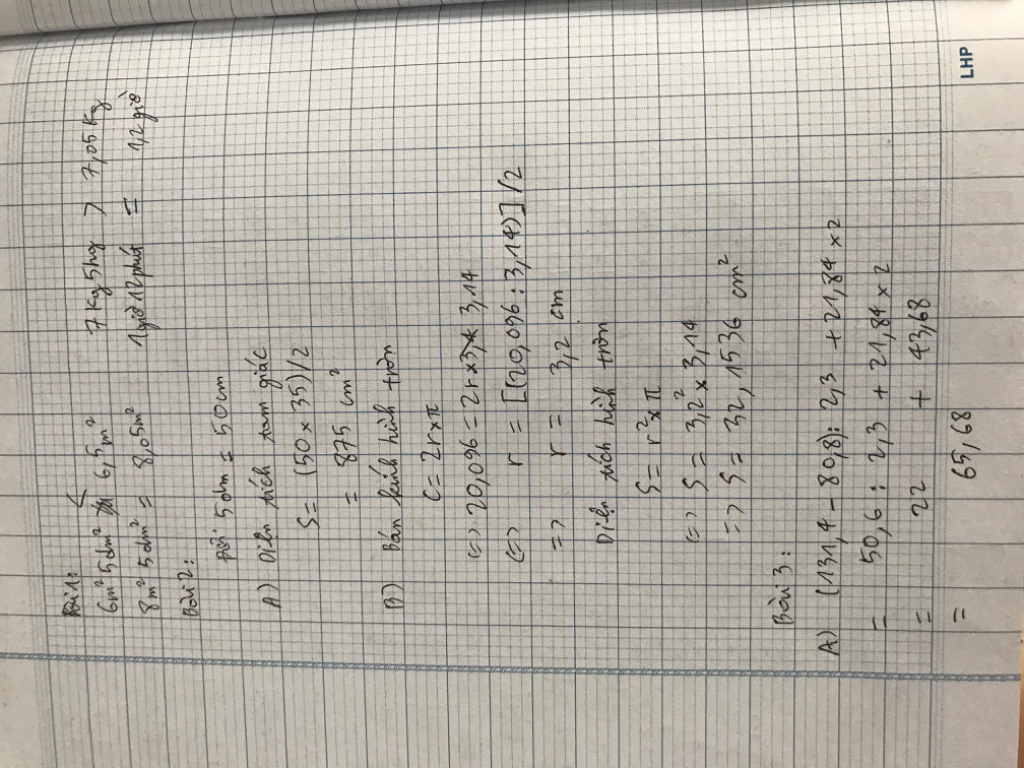 Bài 1:
6m² 5dm² < 6,5m² 7kg 5hg > 7,05kg
8m² 5dm² = 8,05m² 1giờ 12phút = 1,2 giờ
Bài 2:
Đổi 5dm = 50cm
A) Diện tích tam giác
S = (50 x 35)/2
= 875 cm²
B) Bán kính hình tròn
C = 2r x π
<=> 20,096 = 2r x 3,14
<=> r = [(20,096 : 3,14)]/2
=> r = 3,2 cm
Diện tích hình tròn
S = r² x π
<=> S = 3,2² x 3,14
=> S = 32,1536 cm²
Bài 3:
A) (131,4 - 80,8) : 2,3 + 21,84 x 2
= 50,6 : 2,3 + 21,84 x 2
= 22 + 43,68
= 65,68
LHP